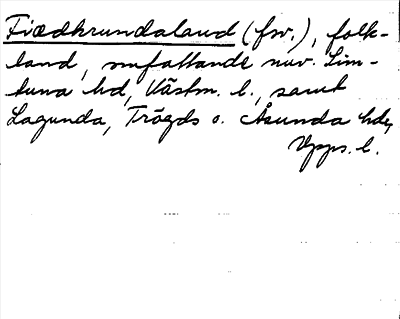 Fiædhrundaland (fsv.), folk-
land, omfattande nuv. Sim-
tuna hd, Västm. l., samt
Lagunda, Trögds o. Åsunda hdr,
Upps. l.